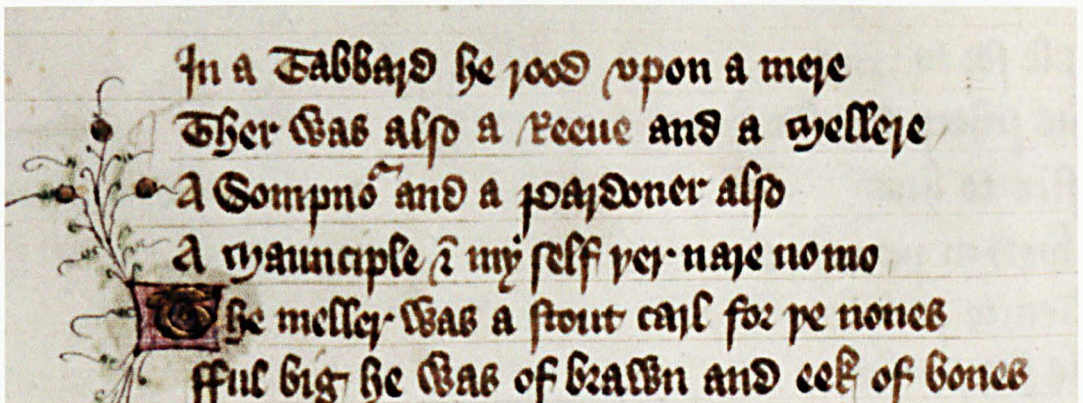 In a Tabbard he rood vpon a mere
Ther was also a Reeue and a Mellere
A Sompno᷑ and a Pardoner also
A Maunciple ⁊ my self þer nare no mo
The meller was a stout carl for þe nones
fful big he was of brawn and eek of bones